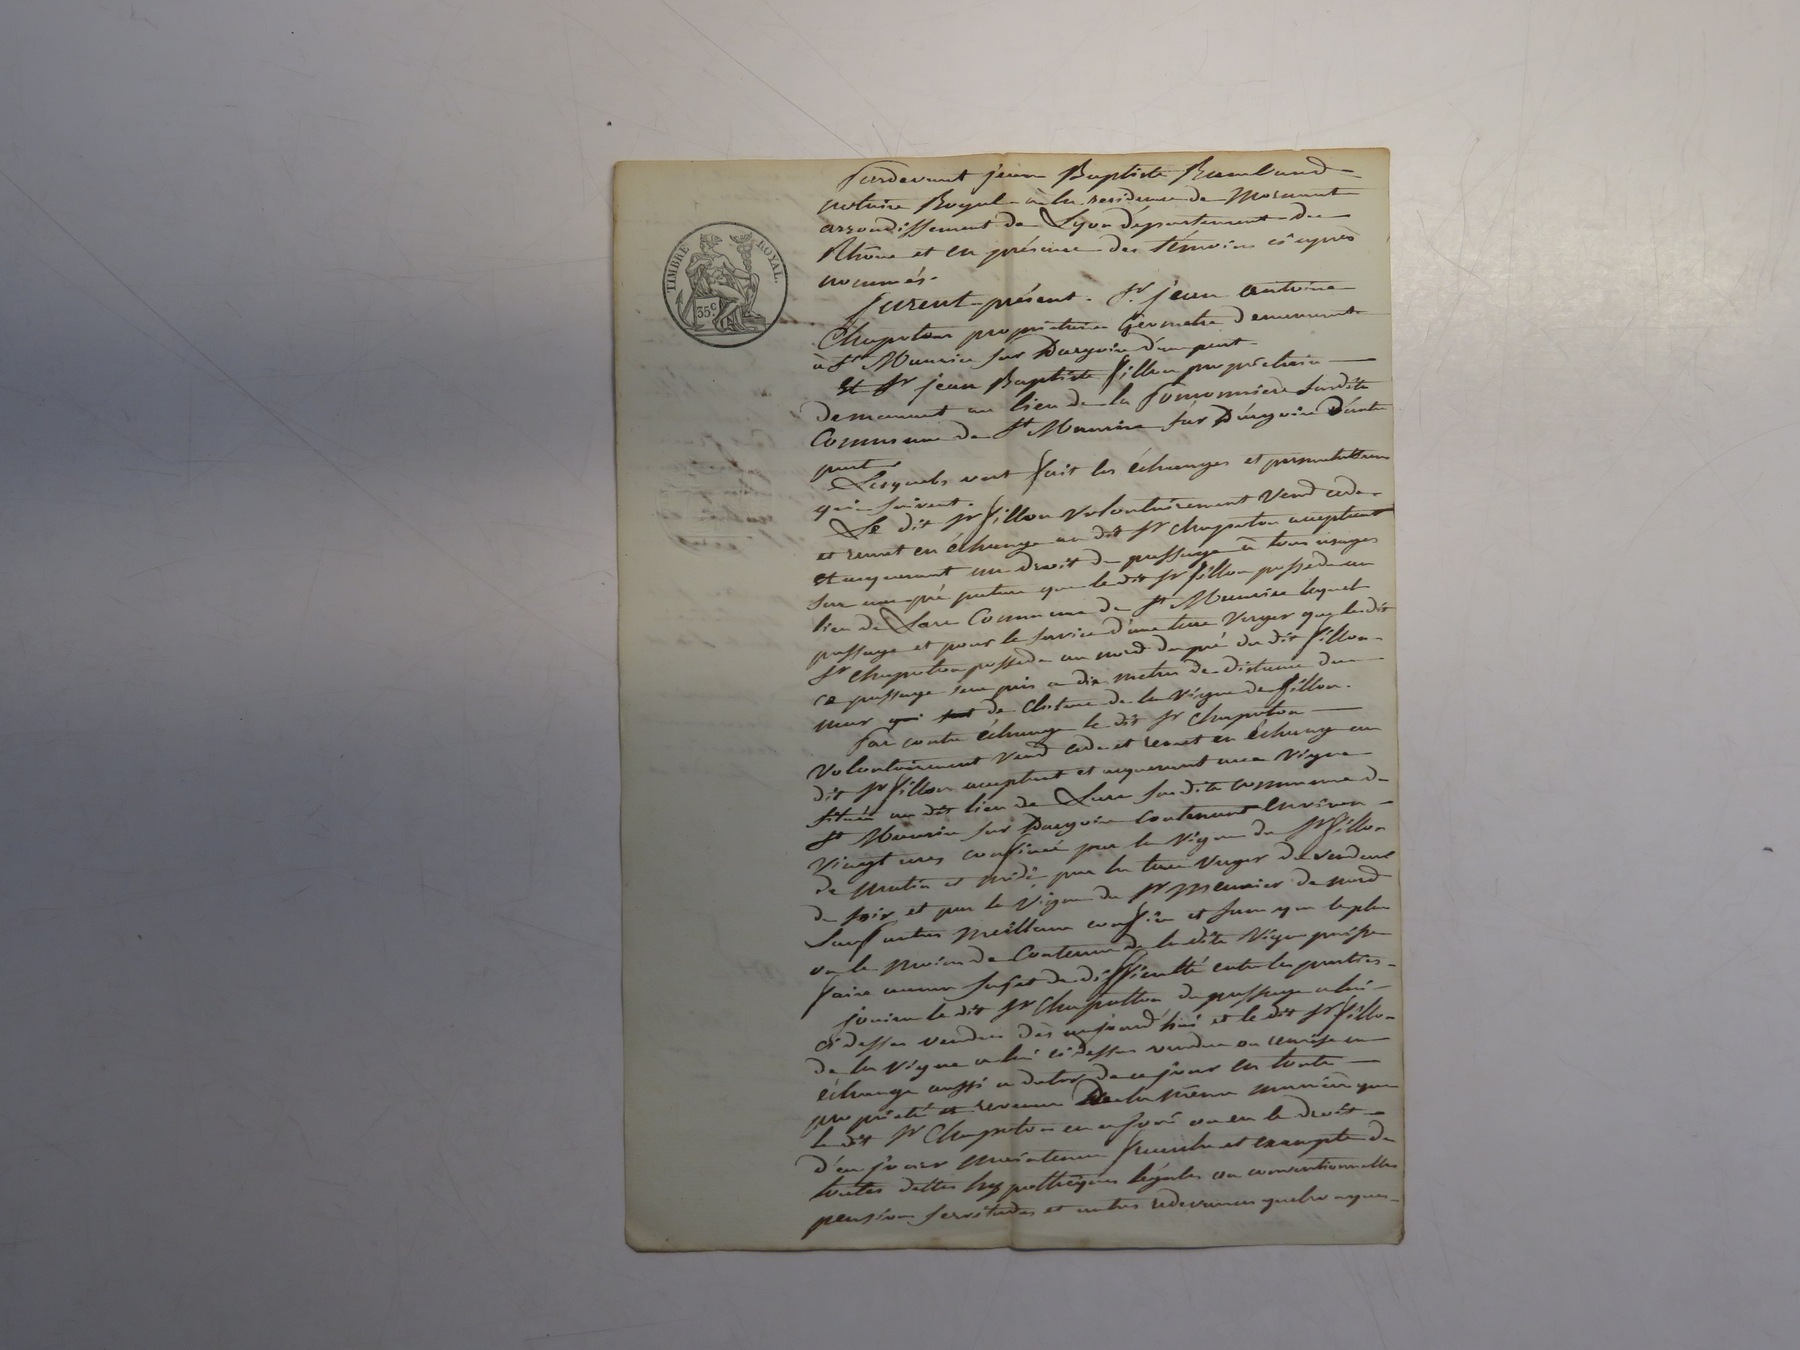 TIMBRE ROYAL.
35 c
Pardevant jean Baptiste Rambaud
notaire Royal à la residence de Mornant
arrondissement de Lyon département du
Rhône et en présence des témoins ci après
nommés.
furent présent. Sr. jean antoine
Chapoton propriétaire Géometre demeurant
à St Maurice sur Dargoire d'une part
Et Sr jean Baptiste fillon propriétaire
demeurant au lieu de la susdite
Commune de St Maurice sur Dargoire D'autre
part
Lesquels ont fait les échanges et permutations
qui suivent.
Le dit Sr fillon volontairement vend cede
et remet en échange au dit Sr Chapoton acceptant
et acquerant un droit de passage à tous usages
sur un pré pature que le dit Sr fillon possède au
lieu de Commune de St Maurice lequel
passage et pour le service d'une terre verger que le dit
Sr Chapoton possede au nord du pré du dit fillon
ce passage sera pris a dix metres de distance du
mur de cloture de la vigne de fillon.
Par contre échange le dit Sr Chapoton
volontairement vend cede et remet en échange au
dit Sr fillon acceptant et acquerant une vigne
située au dit lieu de susdite commune de
St Maurice sur Dargoire contenant environ
vingt ares confinée par la vigne du Sr fillon
de matin et midi par la terre verger de vendeur
de soir, et par la vigne du Sr Meunier de nord
sauf autres meilleurs confins et sans que le plus
ou le moins de contenue de la dite vigne puisse
faire aucun sujet de difficulté entre les parties
jouira le dit Sr Chapotton du passage a lui
ci dessus vendus dès aujourd'hui et le dit Sr fillon
de la vigne a lui ci dessus vendue ou remise en
échange aussi a dater de ce jour en toute
propriété et revenu de la même manière que
le dit Sr Chapoton en a joui ou eu le droit
d'en jouir maintenue franche et exempte de
toutes dettes hypothèques légales ou conventionnelles
pension servitudes et autres redevances quelconques